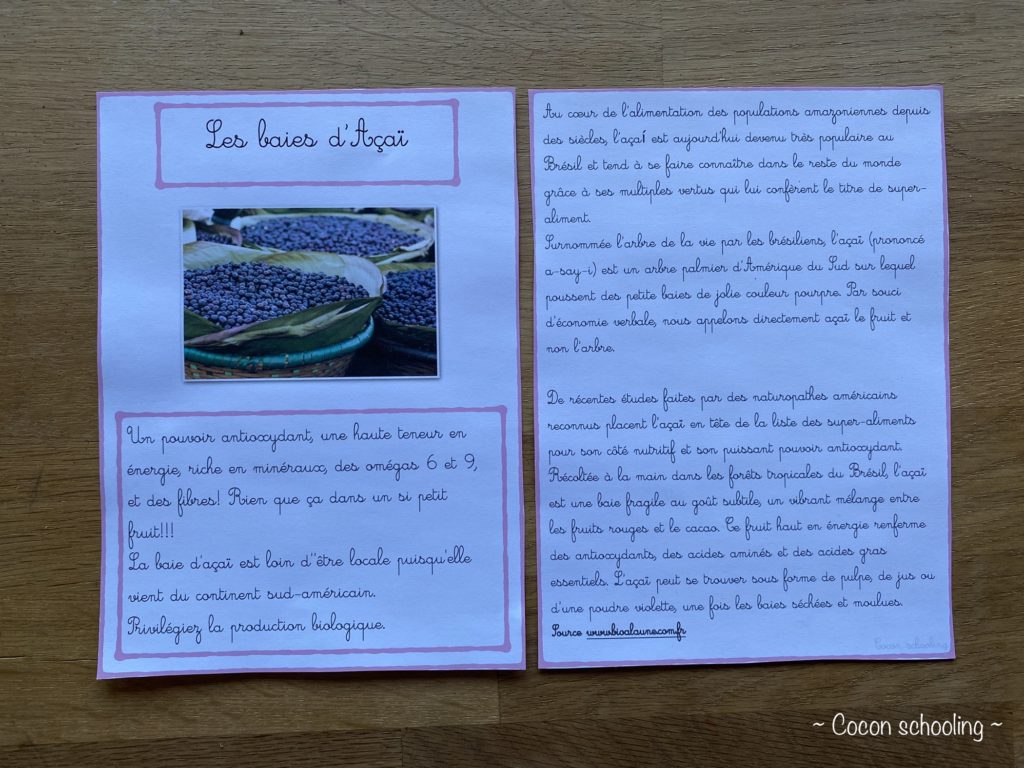 Les baies d'Açaï
Un pouvoir antioxydant, une haute teneur en
énergie, riche en minéraux, des omégas 6 et 9,
et des fibres! Rien que ça dans un si petit
fruit!!!
La baie d'açaï est loin d''être locale puisqu'elle
vient du continent sud-américain.
Privilégiez la production biologique.
Au cœur de l'alimentation des populations amazoniennes depuis
des siècles, l'açaí est aujourd'hui devenu très populaire au
Brésil et tend à se faire connaître dans le reste du monde
grâce à ses multiples vertus qui lui confèrent le titre de super-
aliment.
Surnommée l'arbre de la vie par les brésiliens, l'açaï (prononcé
a-say-i) est un arbre palmier d'Amérique du Sud sur lequel
poussent des petite baies de jolie couleur pourpre. Par souci
d'économie verbale, nous appelons directement açaï le fruit et
non l'arbre.
De récentes études faites par des naturopathes américains
reconnus placent l'açaï en tête de la liste des super-aliments
pour son côté nutritif et son puissant pouvoir antioxydant.
Récoltée à la main dans les forêts tropicales du Brésil, l'açaï
est une baie fragile au goût subtile, un vibrant mélange entre
les fruits rouges et le cacao. Ce fruit haut en énergie renferme
des antioxydants, des acides aminés et des acides gras
essentiels. L'açaï peut se trouver sous forme de pulpe, de jus ou
d'une poudre violette, une fois les baies séchées et moulues.
Source www.bioalaune.com/fr
Cocon schooling
~ Cocon schooling ~